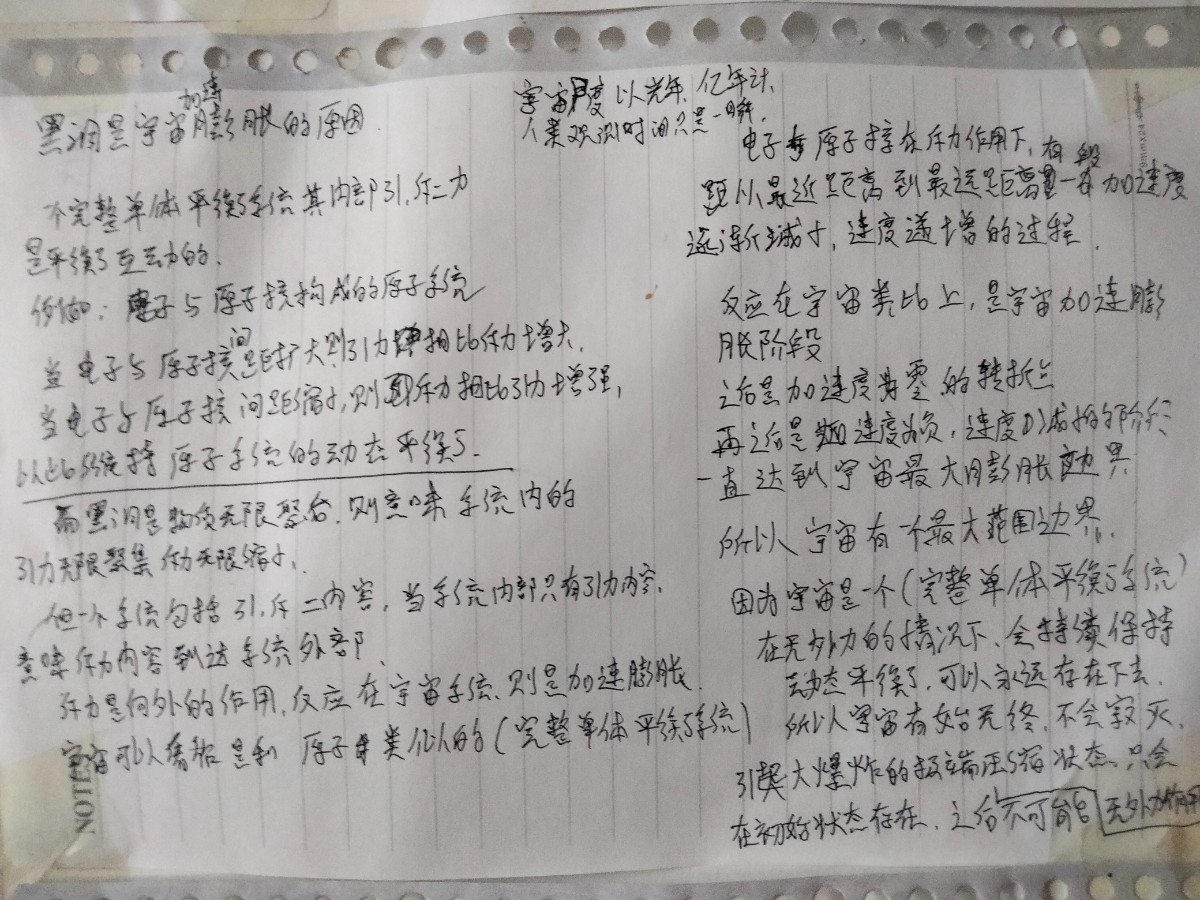 黑洞是宇宙加速膨胀的原因
个完整单体平衡系统其内部引,斥二力
是平衡互动的.
例如:电子与原子核构成的原子系统
当电子与原子核间距扩大则引力相比斥力增大,
当电子与原子核间距缩小,则斥力相比引力增强,
以此维持原子系统的动态平衡.
而黑洞是物质无限聚合,则意味系统内的
引力无限聚集斥力无限缩小,
但一个系统包括引,斥二内容,当系统内部只有引力内容,
意味斥力内容到达系统外部,
斥力是向外的作用,反应在宇宙系统,则是加速膨胀
宇宙可以看作是和原子类似的(完整单体平衡系统)
NOTE
宇宙尺度以光年、亿年计,
人类观测时间只是一瞬,
电子与原子核在斥力作用下,有段
距从最近距离到最远距离是一段加速度
逐渐减小,速度递增的过程.
反应在宇宙类比上,是宇宙加速膨
胀阶段
之后是加速度为零的转折点
再之后是加速度为负,速度减掉的阶段
一直达到宇宙最大膨胀边界
所以宇宙有一个最大范围边界.
因为宇宙是一个(完整单体平衡系统)
在无外力的情况下,会持续保持
动态平衡,可以永远存在下去.
所以宇宙有始无终,不会寂灭,
引起大爆炸的极端压缩状态只会
在初始状态存在,之后不可能 无外力作用